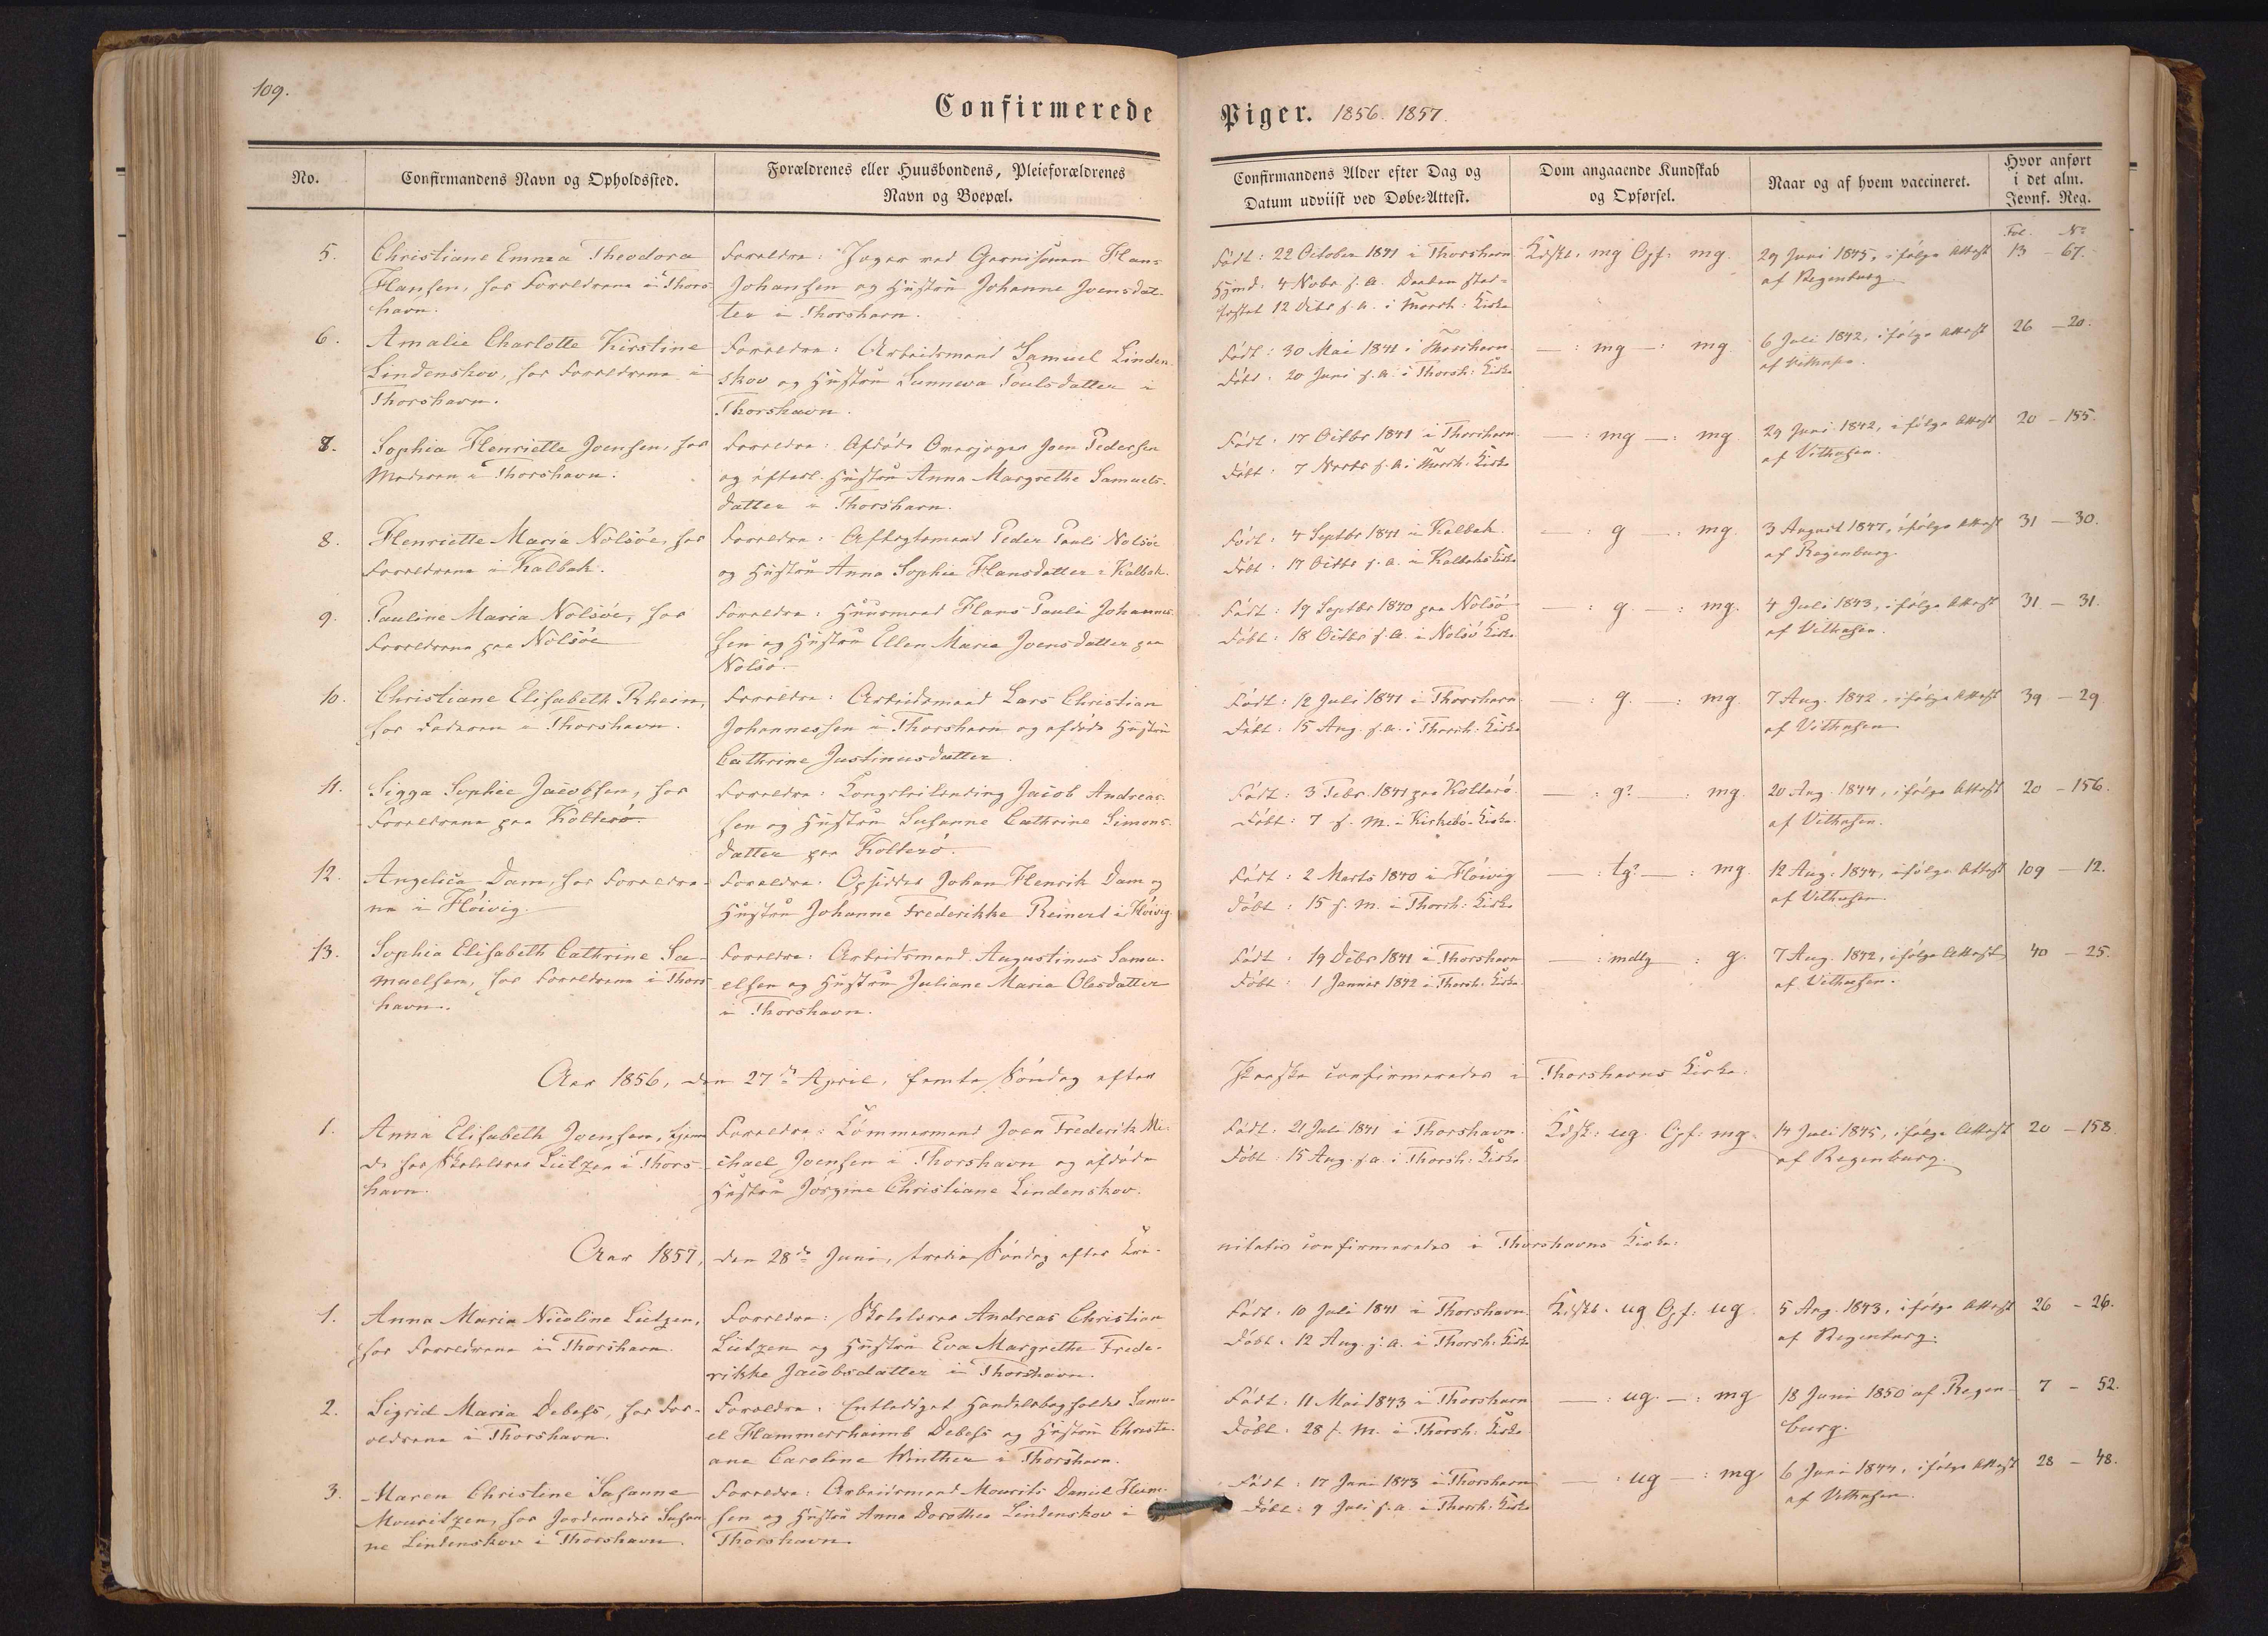 109.
Confirmerede Piger. 1856. 1857.
No.
Confirmandens Navn og Opholdssted.
Forældrenes eller Huusbondens, Pleieforældrenes
Navn og Boepæl.
Confirmandens Alder efter Dag og
Datum udviist ved Døbe-Attest.
Dom angaaende Kundskab
og Opførsel.
Naar og af hvem vaccineret.
Hvor anført
i det alm.
Jevnf. Reg.
Fol. No
5.
Christiane Emma Theodora
Hansen, hos Forældrene i Thors-
havn.
Forældre: Jæger ved Garnisonen Hans
Johansen og Hustru Johanne Joensdat-
ter i Thorshavn.
Født: 22 October 1841 i Thorshavn
Hjmd. 4 Novbr s. A. Daaben stad-
fæstet 12 Decbr s. a. i Thorsh: Kirke
Kdskb: mg Opf: mg.
29 Juni 1845, ifølge Attest
af Regenburg
13 - 67.
6.
Amalie Charlotte Kirstine
Lindenskov, hos Forældrene i
Thorshavn.
Forældre: Arbeidsmand Samuel Linden-
skov og Hustru Sunneva Poulsdatter i
Thorshavn.
Født: 30 Mai 1841 i Thorshavn
Døbt: 20 Juni s. a. i Thorsh: Kirke
— : mg — : mg
6 Juli 1842, ifølge Attest
af Vithusen.
26 - 20.
8.
Sophia Henriette Joensen, hos
Moderen i Thorshavn.
Forældre: Afdøde Overjæger Joen Pedersen
og efterl. Hustru Anna Margrethe Samuels-
datter i Thorshavn.
Født: 17 Octbr 1841 i Thorshavn
Døbt: 7 Novbr s. A. i Thorsh: Kirke
— : mg — : mg.
29 Juni 1842, ifølge Attest
af Vithusen.
20 - 155.
8.
Henriette Maria Nolsøe, hos
Forældrene i Kalbak.
Forældre: Aftægtsmand Peder Pauli Nolsøe
og Hustru Anna Sophie Hansdatter i Kalbak.
Født: 4 Septbr 1841 i Kalbak
Døbt: 17 Octbr s. a. i Kalbaks Kirke
— : g — : mg.
3 August 1847, ifølge Attest
af Regenburg.
31 - 30.
9.
Pauline Maria Nolsöe, hos
Forældrene paa Nolsöe
Forældre: Huusmand Hans Pauli Johannes-
sen og Hustru Ellen Maria Joensdatter paa
Nolsö.
Født: 19 Septbr 1840 paa Nolsö
Døbt: 18 Octbr s. A. i Nolsö Kirke
— : g. — : mg.
4 Juli 1843, ifølge Attest
af Vithusen.
31. - 31.
10.
Christiane Elisabeth Rhein,
hos Faderen i Thorshavn.
Forældre: Arbeidsmand Lars Christian
Johannessen i Thorshavn og afdøde Hustru
Cathrine Justinusdatter.
Født: 12 Juli 1841 i Thorshavn
Døbt: 15 Aug. s. a. i Thorsh: Kirke
— : g. — : mg.
7 Aug. 1842, ifølge Attest
af Vithusen
39 - 29
11.
Sigga Sophie Jacobsen, hos
Forældrene paa Kolterö.
Forældre: Kongsleilending Jacob Andreas-
sen og Hustru Susanne Cathrine Simons-
datter paa Kolterö.
Født: 3 Febr. 1841 paa Kolterö.
Døbt: 7 s. M. i Kirkebö Kirke.
— : g? — : mg.
20 Aug. 1844, ifølge Attest
af Vithusen.
20 - 156.
12.
Angelica Dam, hos Forældre-
ne i Höivig.
Forældre: Opsidder Johan Henrik Dam og
Hustru Johanne Frederikke Reinert i Höivig.
Født: 2 Marts 1840 i Höivig
Døbt: 15 s. M. i Thorsh: Kirke
— : tg? — : mg.
12 Aug. 1844, ifølge Attest
af Vithusen.
109 - 12.
13.
Sophia Elisabeth Cathrine Sa-
muelsen, hos Forældrene i Thors-
havn.
Forældre: Arbeidsmand Augustinus Samu-
elsen og Hustru Juliane Maria Olesdatter
i Thorshavn.
Født: 19 Decbr 1841 i Thorshavn
Døbt: 1 Januar 1842 i Thorsh: Kirke.
— : mdlg : g.
7 Aug. 1842, ifølge Attest
af Vithusen.
40 - 25.
Aar 1856, den 27de April, femte Søndag efter Paaske confirmeredes i Thorshavns Kirke.
1.
Anna Elisabeth Joensen, tjenen-
de hos Skolelærer Lützen i Thors-
havn.
Forældre: Tømmermand Joen Frederik Mi-
chael Joensen i Thorshavn og afdøde
Hustru Jörgine Christiane Lindenskov.
Født: 21 Juli 1841 i Thorshavn.
Døbt 15 Aug. s. a. i Thorsh: Kirke
Kdsk: ug. Opf: mg.
14 Juli 1845, ifølge Attest
af Regenburg.
20 - 158.
Aar 1857, den 28de Juni, tredie Søndag efter Tri- nitatis confirmeredes i Thorshavns Kirke:
1.
Anna Maria Nicoline Lützen,
hos Forældrene i Thorshavn.
Forældre: Skolelærer Andreas Christian
Lützen og Hustru Eva Margrethe Frede-
rikke Jacobsdatter i Thorshavn.
Født: 10 Juli 1841 i Thorshavn
Døbt: 12 Aug. s. a. i Thorsh: Kirke
Kdskb: ug Opf: ug
5 Aug. 1843, ifølge Attest
af Regenburg.
26 - 26.
2.
Sigrid Maria Debess, hos For-
ældrene i Thorshavn.
Forældre: Entlediget Handelsbogholder Samu-
el Hammershaimb Debess og Hustru Christi-
ane Caroline Winther i Thorshavn.
Født: 11 Mai 1843 i Thorshavn
Døbt: 28 s. M. i Thorsh: Kirke
— : ug. — : mg
18 Juni 1850 af Regen-
burg.
7 - 52.
3.
Maren Christine Susanne
Mouritzen, hos Jordemoder Susan-
ne Lindenskov i Thorshavn.
Forældre: Arbeidsmand Mourits Daniel
sen og Hustru Anna Dorothea Lindenskov i
Thorshavn.
Født: 17 Juni 1843 i Thorshavn
Døbt: 9 Juli s. a. i Thorsh: Kirke
— : ug — : mg
6 Juni 1844, ifølge Attest
af Vithusen.
28 - 48.